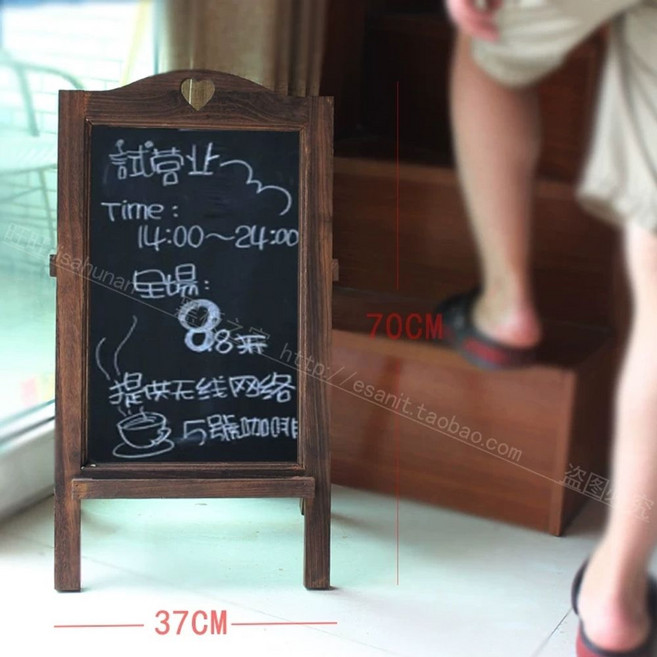 試营业
Time:
14:00～24:00
全場:
8.8釆
提供无线网络
5號咖啡
70CM
37CM
http://esanit.taobao.com
盗图必究